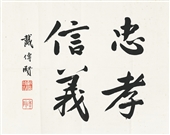 忠孝
信義
戴傳賢